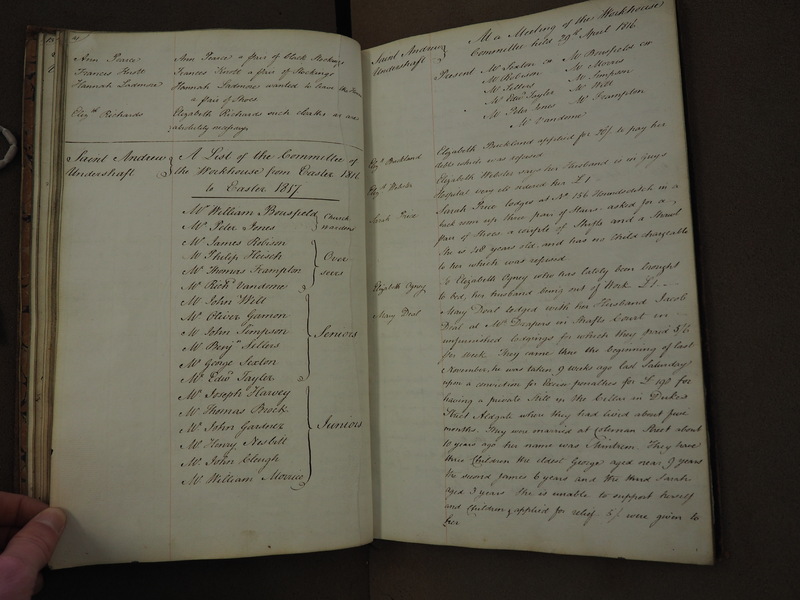 4
Ann Pearce Ann Pearce a pair of black Stockings
Frances Knott Frances Knott a pair of Stockings
Hannah Ladmore Hannah Ladmore wanted to have the
a pair of Shoes
Elizth Richards Elizabeth Richards such cloaths as are
absolutely necessary
Saint Andrew
Undershaft
A List of the Committee of
the Workhouse from Easter 1816
to Easter 1817
Mr William Bousfield
Mr Peter Jones
Church
wardens
Mr James Robison
Mr Philip Hoisch
Mr Thomas Frampton
Mr Richd Vandome
Over
seers
Mr John Will
Mr Oliver Gamon
Mr John Simpson
Mr Benjn Sellers
Mr George Sexton
Mr Edwd Tayler
Seniors
Mr Joseph Harvey
Mr Thomas Brock
Mr John Gardner
Mr Henry Nesbitt
Mr John Clough
Mr William Morrice
Juniors
Saint Andrew
Undershaft
At a Meeting of the Workhouse
Committee held 29th April 1816
Present Mr Sexton Mr Bousfield
Mr Robison Mr Morris
Mr Sellers Mr Simpson
Mr Edwd Tayler Mr Will
Mr Peter Jones Mr Frampton
Mr Vandome
Elizth Buckland Elizabeth Buckland applied for 20/ to pay her
debts which was refused
Elizth Webster Elizabeth Webster says her husband is in Guys
Hospital very ill ordered her £1
Sarah Price Sarah Price lodges at No 156 Houndsditch in a
back room up three pair of Stairs asked for a
pair of Shoes a couple of Shifts and a Shawl
She is 38 years old and has no Child chargeable
to her which was refused
Elizabeth Agney To Elizabeth Agney who has lately been brought
to bed, her husband being out of Work £1
Mary Deal Mary Deal lodged with her Husband Jacob
Deal at Mr Drapers in Shafts Court in
unfurnished lodgings for which they paid 5/
per Week. They came there the beginning of last
November, he was taken 9 weeks ago last Saturday
upon a conviction for penalties for £ 190 for
having a private Still in the Cellar in Dukes
Street Aldgate where they had lived about five
months. They were married at Coleman Street about
10 years ago her name was They have
three Children the eldest George aged near 9 years
the second James 6 years and the third Sarah
aged 3 years She is unable to support herself
and Children & applied for relief. 5/ were given to
her